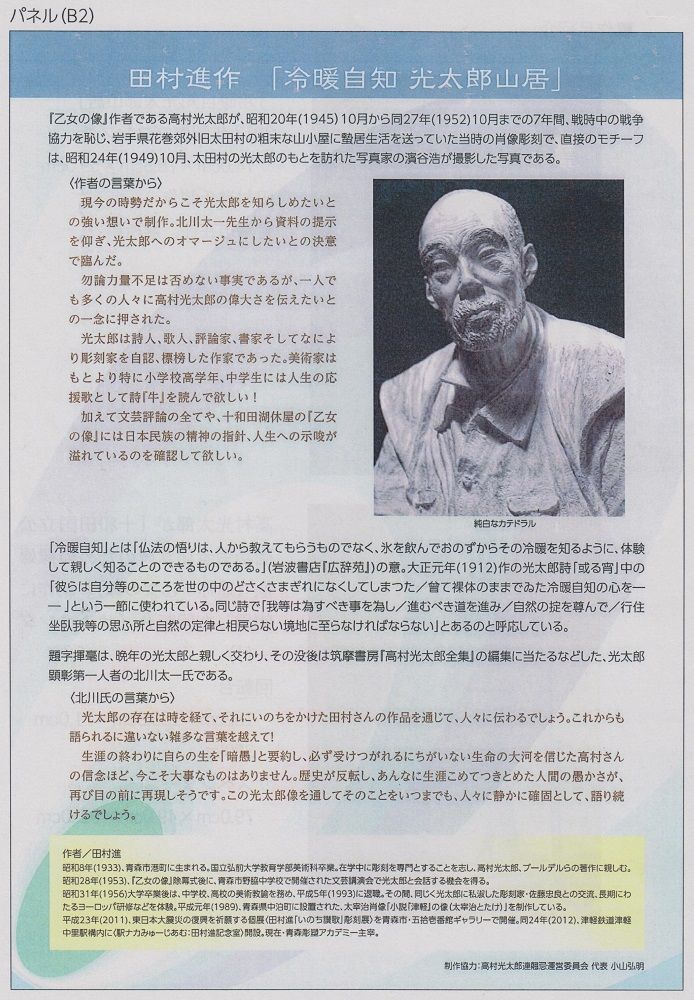 パネル(B2)
田村進作 「冷暖自知 光太郎山居」
『乙女の像』作者である高村光太郎が、昭和20年(1945)10月から同27年(1952)10月までの7年間、戦時中の戦争
協力を恥じ、岩手県花巻郊外旧太田村の粗末な山小屋に蟄居生活を送っていた当時の肖像彫刻で、直接のモチーフ
は、昭和24年(1949)10月、太田村の光太郎のもとを訪れた写真家の濱谷浩が撮影した写真である。
〈作者の言葉から〉
現今の時勢だからこそ光太郎を知らしめたいと
の強い想いで制作。北川太一先生から資料の提示
を仰ぎ、光太郎へのオマージュにしたいとの決意
で臨んだ。
勿論力量不足は否めない事実であるが、一人で
も多くの人々に高村光太郎の偉大さを伝えたいと
の一念に押された。
光太郎は詩人、歌人、評論家、書家そしてなによ
り彫刻家を自認、標榜した作家であった。美術家は
もとより特に小学校高学年、中学生には人生の応
援歌として詩『牛』を読んで欲しい!
加えて文芸評論の全てや、十和田湖休屋の『乙女
の像』には日本民族の精神の指針、人生への示唆が
溢れているのを確認して欲しい。
純白なカテドラル
「冷暖自知」とは「仏法の悟りは、人から教えてもらうものでなく、氷を飲んでおのずからその冷暖を知るように、体験
して親しく知ることのできるものである。」(岩波書店『広辞苑』)の意。大正元年(1912)作の光太郎詩「或る宵」中の
「彼らは自分等のこころを世の中のどさくさまぎれになくしてしまつた/曾て裸体のままでゐた冷暖自知の心を―
―」という一節に使われている。同じ詩で「我等は為すべき事を為し/進むべき道を進み/自然の掟を尊んで/行住
坐臥我等の思ふ所と自然の定律と相戻らない境地に至らなければならない」とあるのと呼応している。
題字揮毫は、晩年の光太郎と親しく交わり、その没後は筑摩書房『高村光太郎全集』の編集に当たるなどした、光太郎
顕彰第一人者の北川太一氏である。
〈北川氏の言葉から〉
光太郎の存在は時を経て、それにいのちをかけた田村さんの作品を通じて、人々に伝わるでしょう。これからも
語られるに違いない雑多な言葉を越えて!
生涯の終わりに自らの生を「暗愚」と要約し、必ず受けつがれるにちがいない生命の大河を信じた高村さん
の信念ほど、今こそ大事なものはありません。歴史が反転し、あんなに生涯こめてつきとめた人間の愚かさが、
再び目の前に再現しそうです。この光太郎像を通してそのことをいつまでも、人々に静かに確固として、語り続
けるでしょう。
作者/田村進
昭和8年(1933)、青森市港町に生まれる。国立弘前大学教育学部美術科卒業。在学中に彫刻を専門とすることを志し、高村光太郎、ブールデルらの著作に親しむ。
昭和28年(1953)、『乙女の像』除幕式後に、青森市野脇中学校で開催された文芸講演会で光太郎と会話する機会を得る。
昭和31年(1956)大学卒業後は、中学校、高校の美術教諭を務め、平成5年(1993)に退職。その間、同じく光太郎に私淑した彫刻家・佐藤忠良との交流、長期にわ
たるヨーロッパ研修などを体験。平成元年(1989)、青森県中泊町に設置された、太宰治肖像「小説『津軽』の像(太宰治とたけ)」を制作している。
平成23年(2011)、東日本大震災の復興を祈願する個展(田村進「いのち讃歌」彫刻展)を青森市・五拾壱番館ギャラリーで開催。同24年(2012)、津軽鉄道津軽
中里駅構内に〈駅ナカみゅーじあむ:田村進記念室〉開設。現在・青森彫塑アカデミー主宰。
制作協力:高村光太郎連翹忌運営委員会 代表 小山弘明